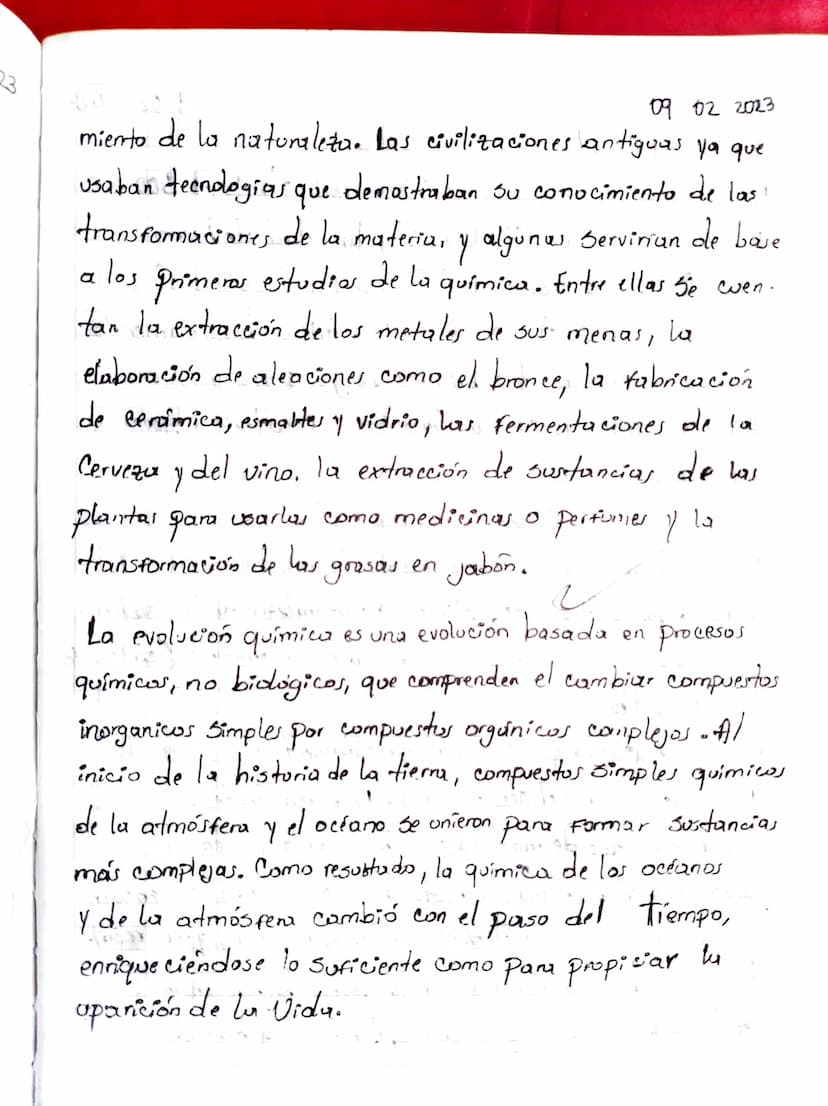 09 02 2023
miento de la naturaleza. Las civilizaciones antiguas ya que
usaban tecnologías que demostraban su conocimiento de las
transformaciones de la materia, y algunas servirian de base
a los primeros estudios de la química. Entre ellas se cuen-
tan la extracción de los metales de sus menas, la
elaboración de aleaciones como el bronce, la fabricación
de cerámica, esmaltes y vidrio, las fermentaciones de la
cerveza y del vino, la extracción de sustancias de las
plantas para usarlas como medicinas o perfumes y la
transformación de las grasas en jabón.
La evolución química es una evolución basada en procesos
químicos, no biológicos, que comprenden el cambiar compuestos
inorganicos simples por compuestos orgánicos complejos. Al
inicio de la historia de la tierra, compuestos simples químicos
de la atmósfera y el océano se unieron para formar sustancias
más complejas. Como resultado, la química de los océanos
y de la atmósfera cambió con el paso del tiempo,
enriqueciéndose lo suficiente como para propiciar la
aparición de la vida.